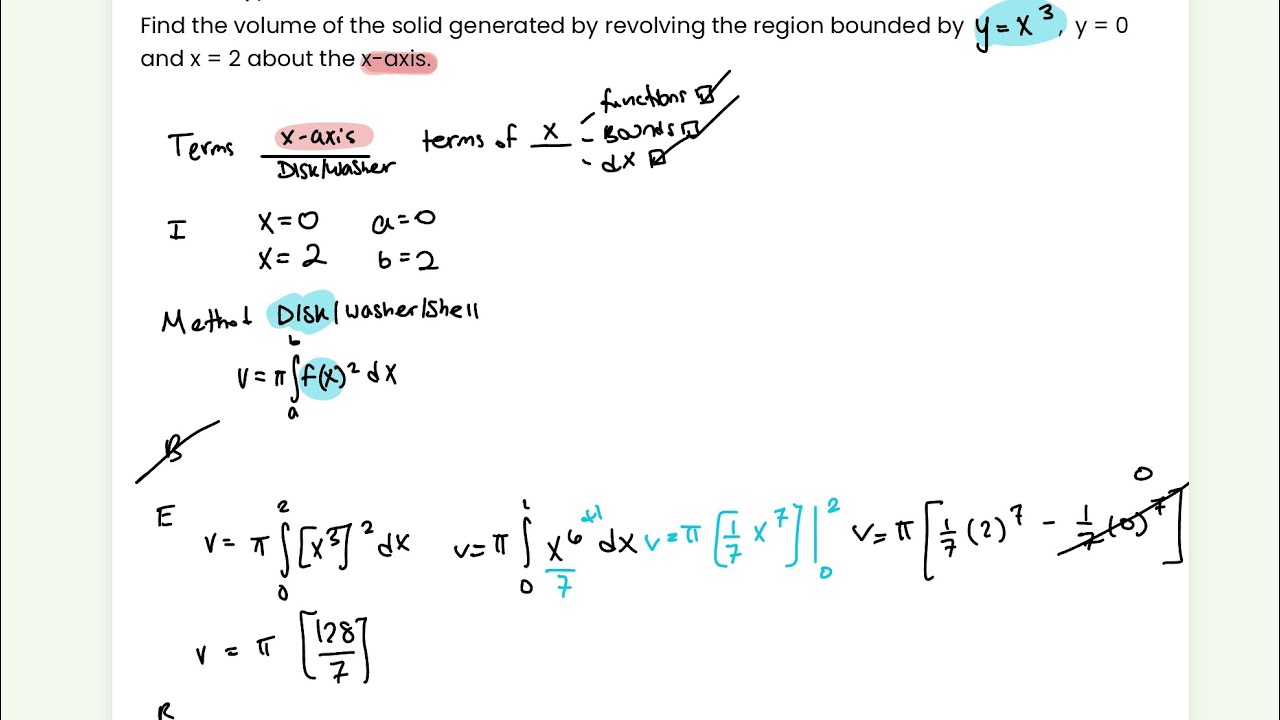 Find the volume of the solid generated by revolving the region bounded by y = x³, y = 0
and x = 2 about the x-axis.
Terms x-axis / Disk/washer terms of x - functions ☑
- Bounds ☑
- dx ☑
I x=0 a=0
x=2 b=2
Method Disk/washer/shell
V = π ∫ₐᵇ f(x)² dx
B
E V = π ∫₀² [x³]² dx V = π ∫₀ x⁶⁺¹/7 dx V = π [1/7 x⁷] |₀² V = π [1/7 (2)⁷ - 1/7 (0)⁷] 0
V = π [128/7]